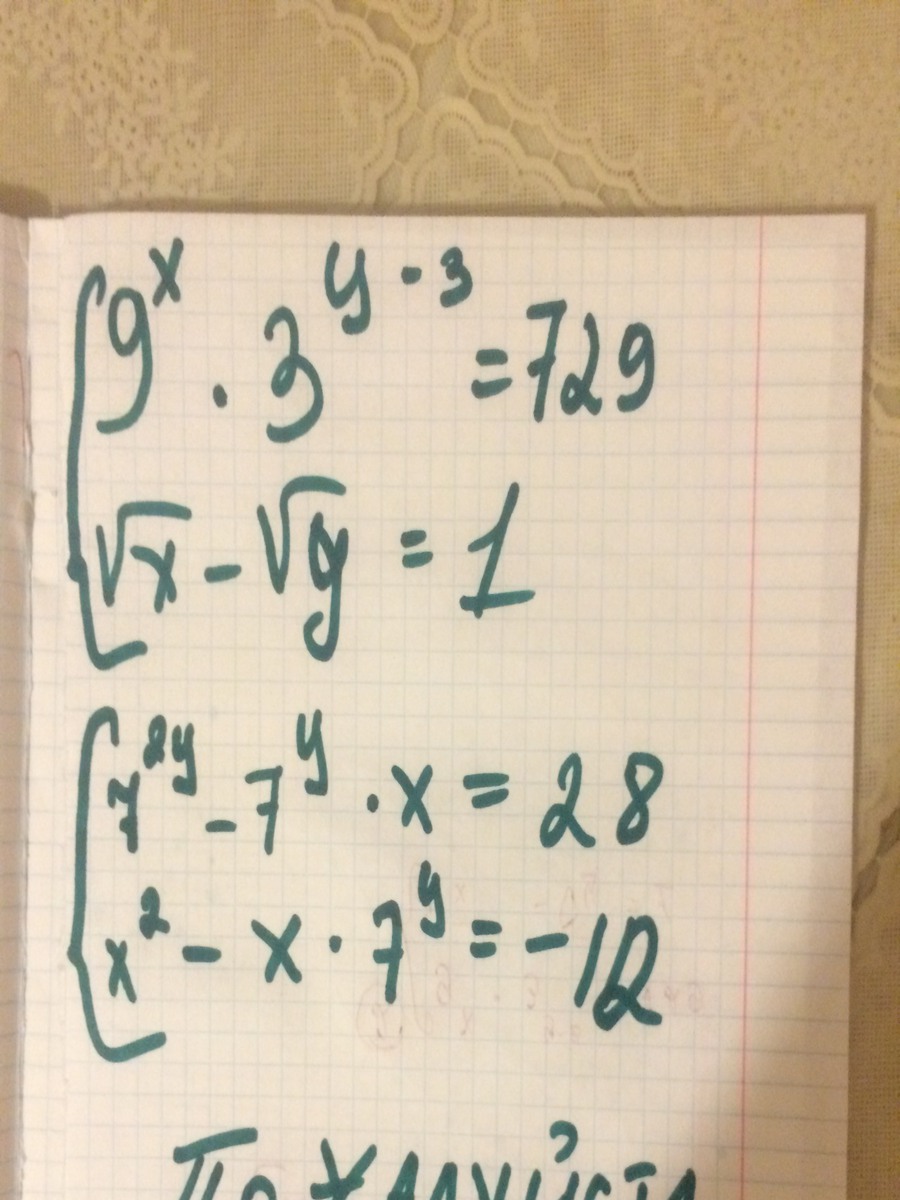 9^x · 3^{y-3} = 729
√x - √y = 1
7^{2y} - 7^y · x = 28
x^2 - x · 7^y = -12
Пожалуйста